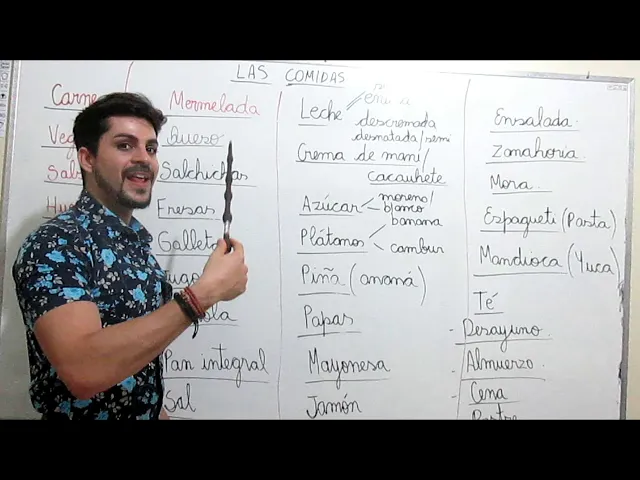 LAS COMIDAS
Carne
Mermelada
Queso
Salchichas
Fresas
Pan integral
Sal
Leche
descremada
desnatada/semi
Crema de maní/
cacauhete
Azúcar
moreno/
blanco
Plátanos
banana
cambur
Piña (ananá)
Papas
Mayonesa
Jamón
Ensalada.
Zanahoria.
Mora.
Espagueti (Pasta)
Mandioca (Yuca)
Té
- Desayuno.
- Almuerzo.
- Cena